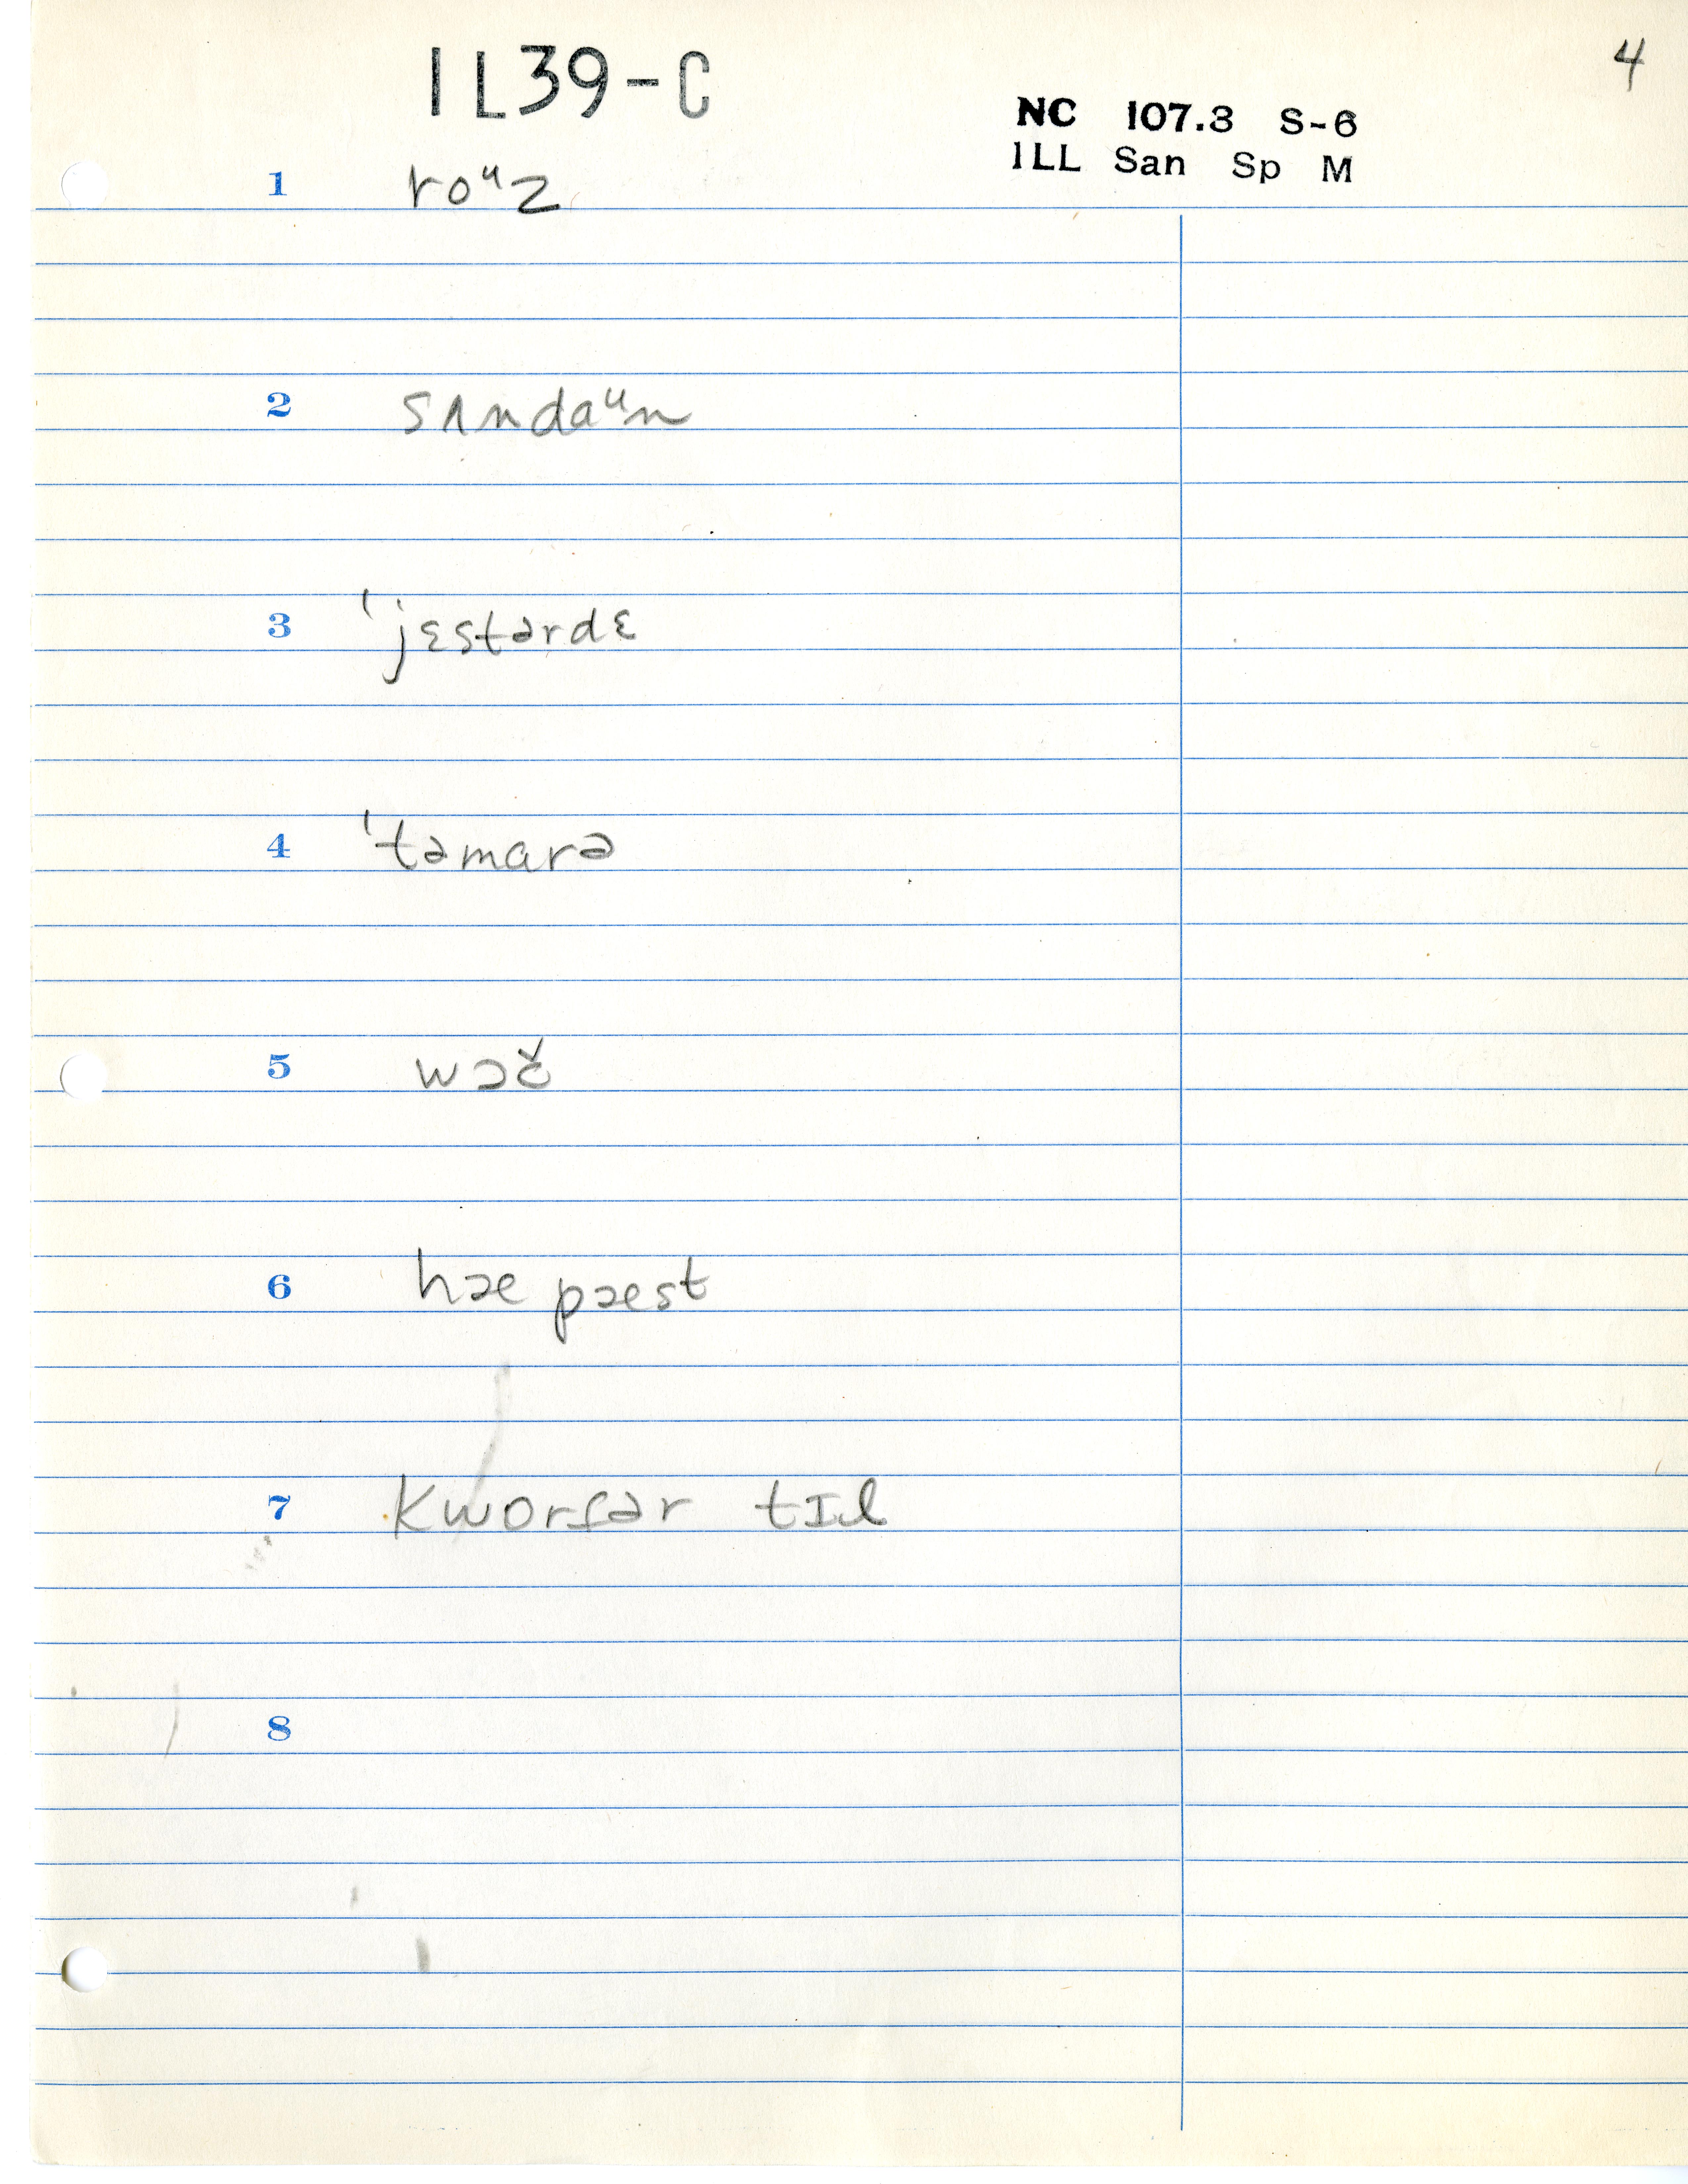 4
IL39-C
NC 107.3 S-6
ILL San Sp M
1 roᵘz
2 sʌndaᵘn
3 ˈjɛstərdɛ
4 ˈtəmarə
5 wɔč
6 hæ pæst
7 kworfər tɪl
8